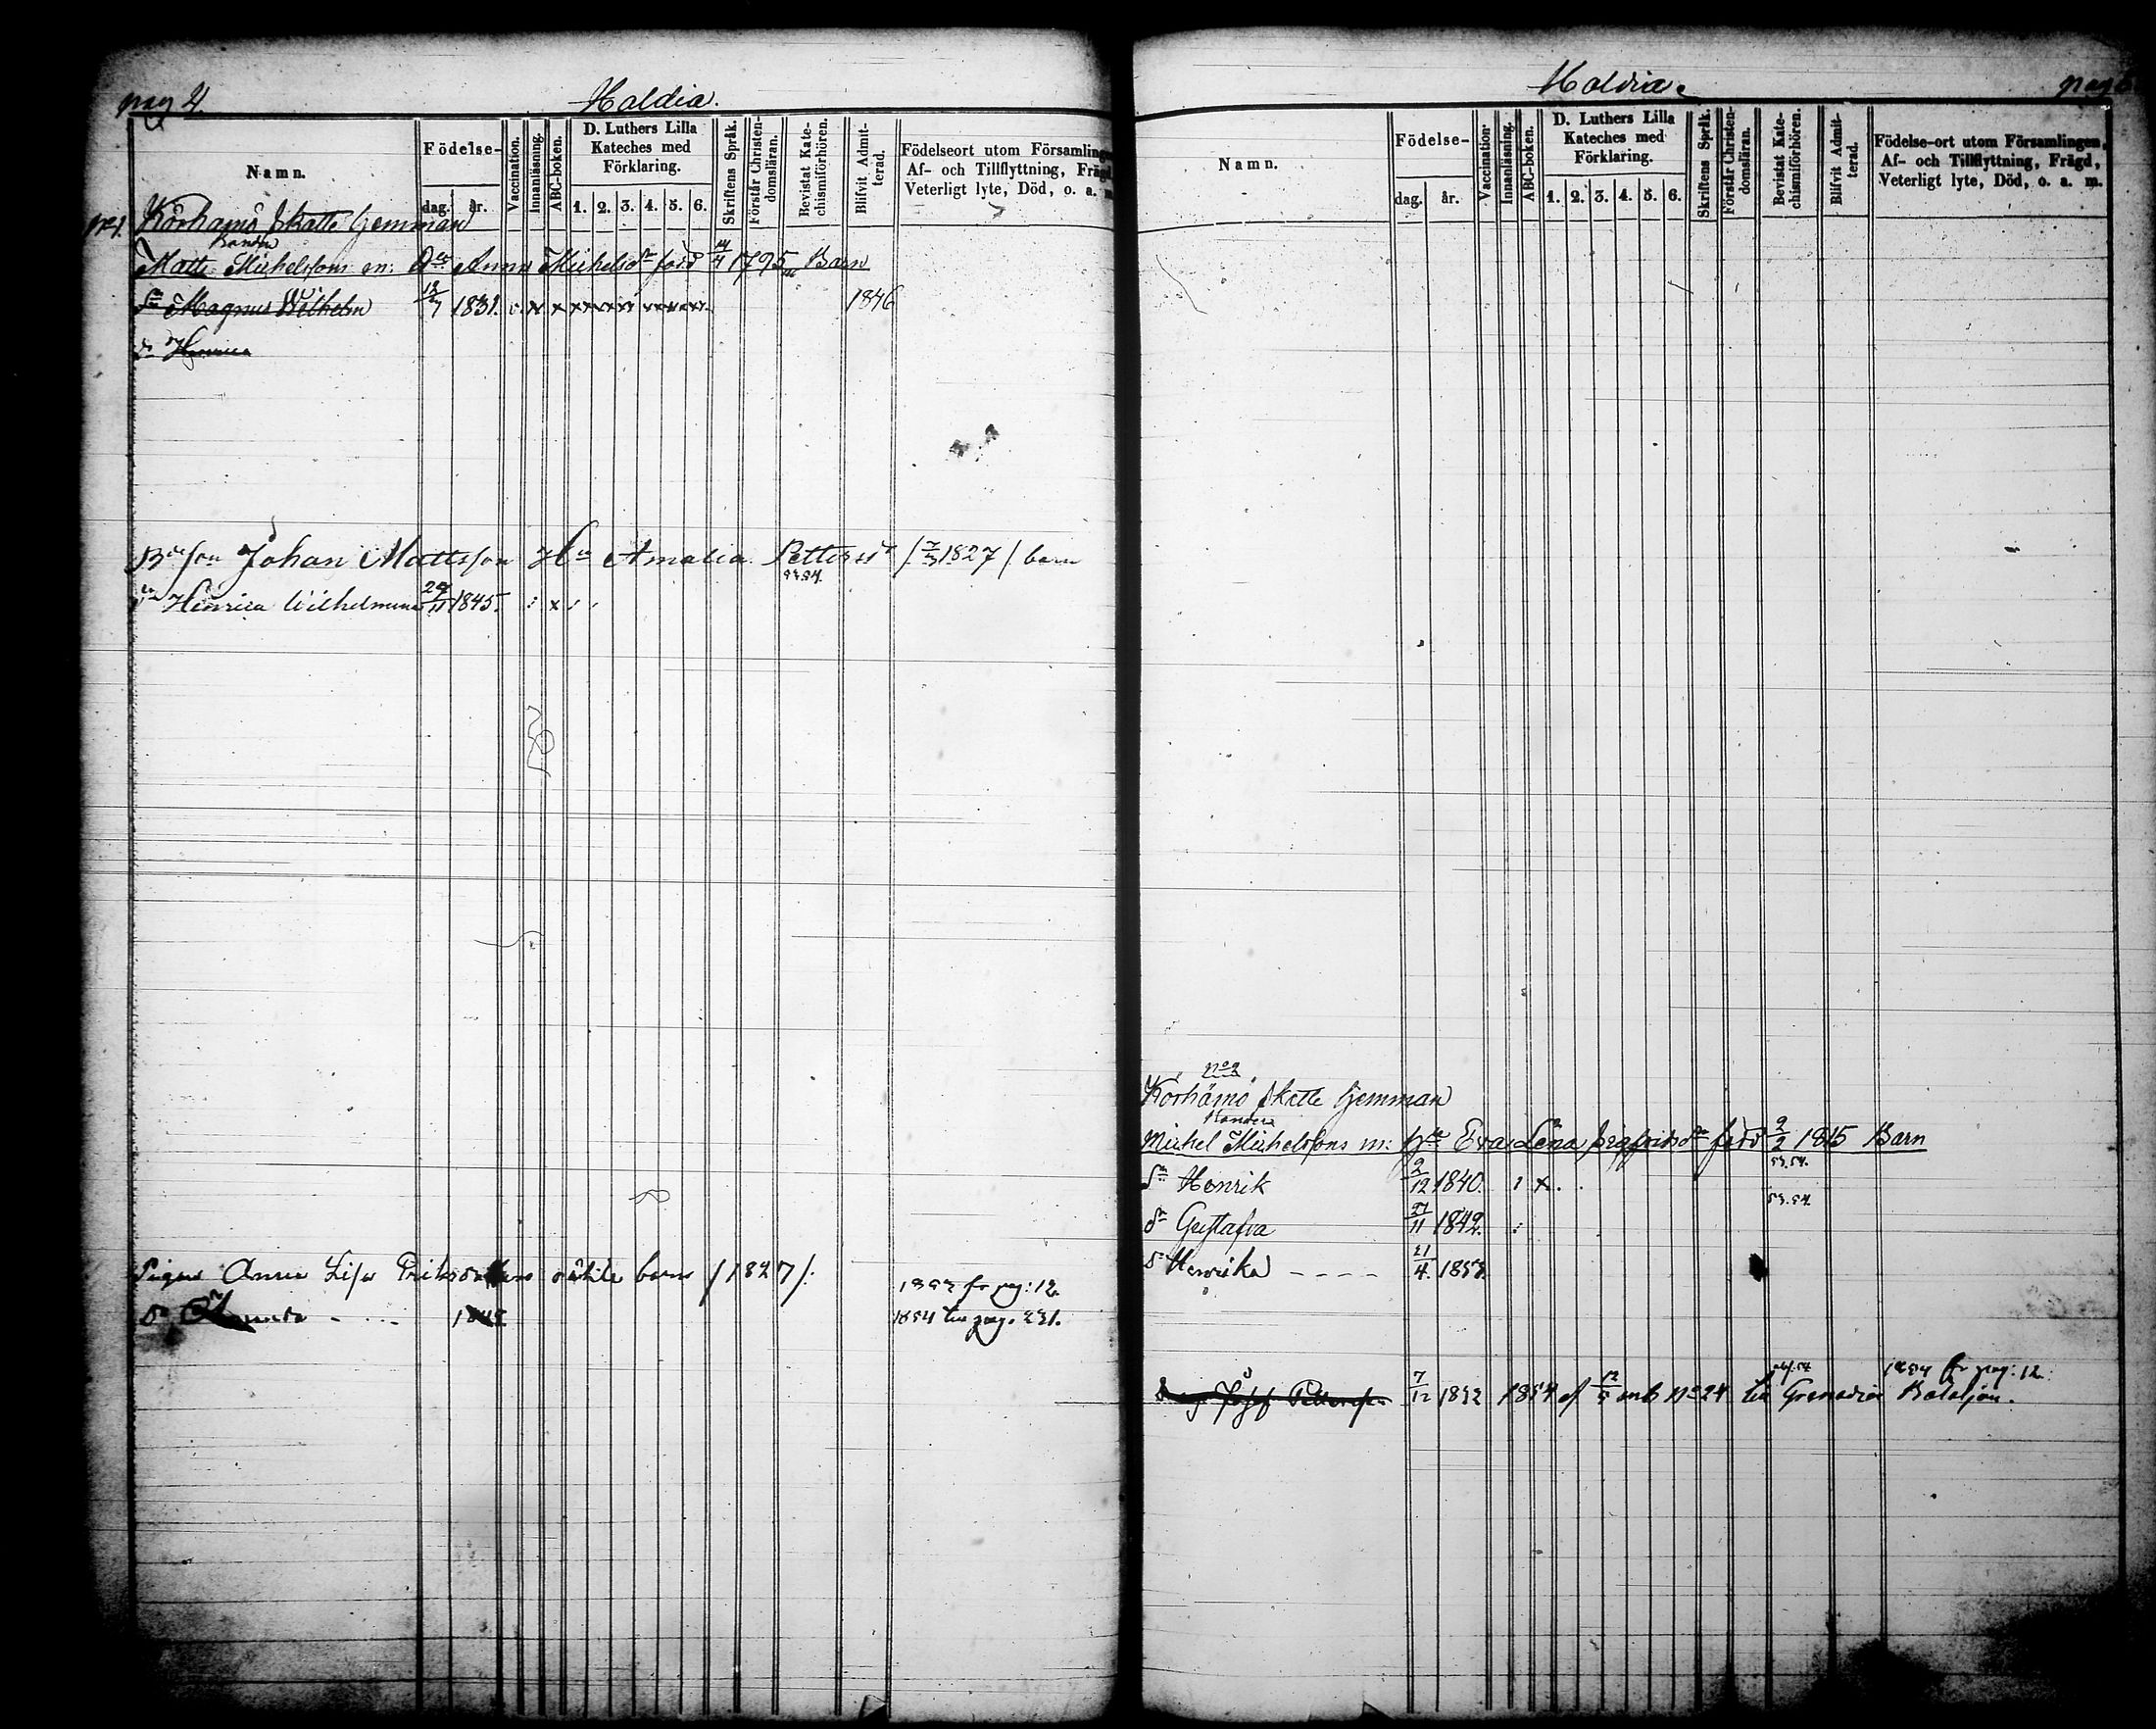 pag 4.
Haldia.
Namn.
Födelse-
dag. år.
Vaccination.
Innanläsning.
ABC-boken.
D. Luthers Lilla Kateches med Förklaring.
1. 2. 3. 4. 5. 6.
Skriftens Språk.
Förstår Christendomsläran.
Bevistat Katechismiförhören.
Blifvit Admitterad.
Födelseort utom Församlingen
Af- och Tillflyttning, Frägd,
Veterligt lyte, Död, o. a. m
No 1. Körhämö Skatte Hemman
Bonden
Matts Michelssons m: Anna Michelsdr född 14/4 1795 Barn
Sn Magnus Wilhelm 12/7 1831. 1846
Dr Henrica
Bdeson Johan Mattsson Hu Amalia Pettersdr /: 7/3 1827 / barn
53.54.
Dr Henrica Wilhelmina 24/11 1845.
Pigan Anna Lisa Eriksdotters oäkta barn / 1827 /:
1853 fr pag: 12.
1854 till pag. 231.
Haldia.
pag
Namn.
Födelse-
dag. år.
Vaccination.
Innanläsning.
ABC-boken.
D. Luthers Lilla Kateches med Förklaring.
1. 2. 3. 4. 5. 6.
Skriftens Språk.
Förstår Christendomsläran.
Bevistat Katechismiförhören.
Blifvit Admitterad.
Födelse-ort utom Församlingen,
Af- och Tillflyttning, Frägd,
Veterligt lyte, Död, o. a. m.
No 2
Körhämö Skatte Hemman
Bonden
Michel Michelssons m: Hu Eva Lena Sigfridsdr född 2/2 1815 Barn
53.54.
Sn Henrik 2/12 1840. : x.
53.54.
Dr Gustafva 27/11 1842. :
Dr Henrika - - - - 21/4. 1853.
1854 fr pag: 12.
Josef Petterson 7/12 1832 1854 af 12/5 No 24 till Grenadier Bataljon.